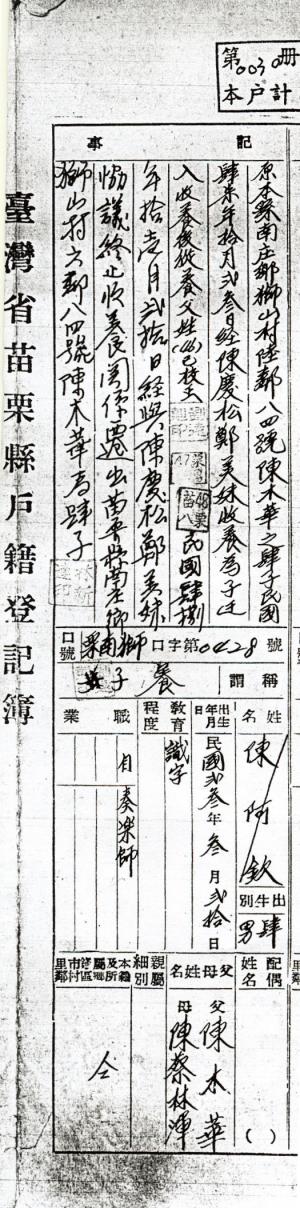 第0030冊
本戶計
記事
原本縣南庄鄉獅山村陸鄰八四號陳木華之肆子民國
肆柒年拾月貳叁日經陳慶松鄭美妹收養為子迁
入收養後從養父姓
民國肆捌
年拾壹月貳拾日經與陳慶松鄭美妹
協議終止收養關係遷出苗栗縣南庄鄉
獅山村六鄰八四號陳木華為肆子
臺灣省苗栗縣戶籍登記簿
口號 栗南獅口字第0428號
稱謂 養子
姓名 陳阿欽
出生別 肆男
出生年月日 民國貳叁年叁月貳拾日
教育程度 識字
職業 自 奏樂師
配偶姓名 ( )
父母姓名 父 陳木華
母 陳蔡林渾
親屬細別
本籍及所屬鄉鎮市區村里鄰 仝